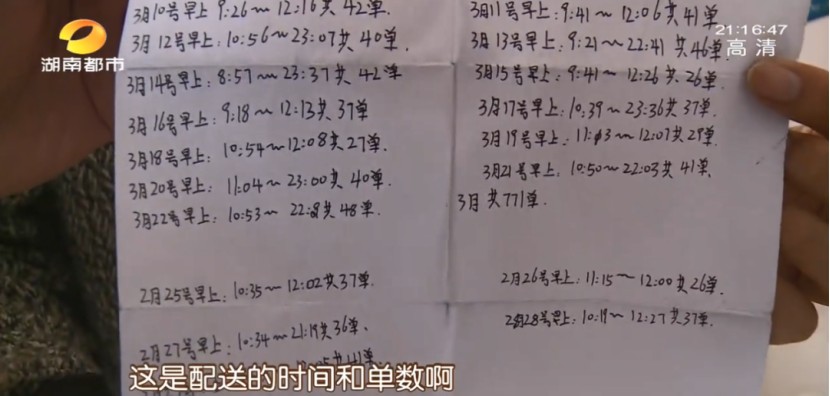 3月10号早上: 9:26～12:16共42单.
3月11号早上: 9:41～12:06共41单
3月12号早上: 10:56～23:07共40单.
3月13号早上: 9:21～22:41共46单.
3月14号早上: 8:57～23:37共42单
3月15号早上: 9:41～12:26共26单.
3月16号早上: 9:18～12:13共37单
3月17号早上: 10:39～23:36共37单.
3月18号早上: 10:54～12:08共27单.
3月19号早上: ～12:07共29单.
3月20号早上: 11:04～23:00共40单.
3月21号早上: 10:50～22:03共41单.
3月共771单.
3月22号早上: 10:53～ 共48单.
2月25号早上: 10:35～12:02共37单.
2月26号早上: 11:15～12:00共26单.
2月27号早上: 10:34～21:19共36单.
2月28号早上: 10:19～12:27共37单.
共41单.
湖南都市
21:16:47
高清
这是配送的时间和单数啊